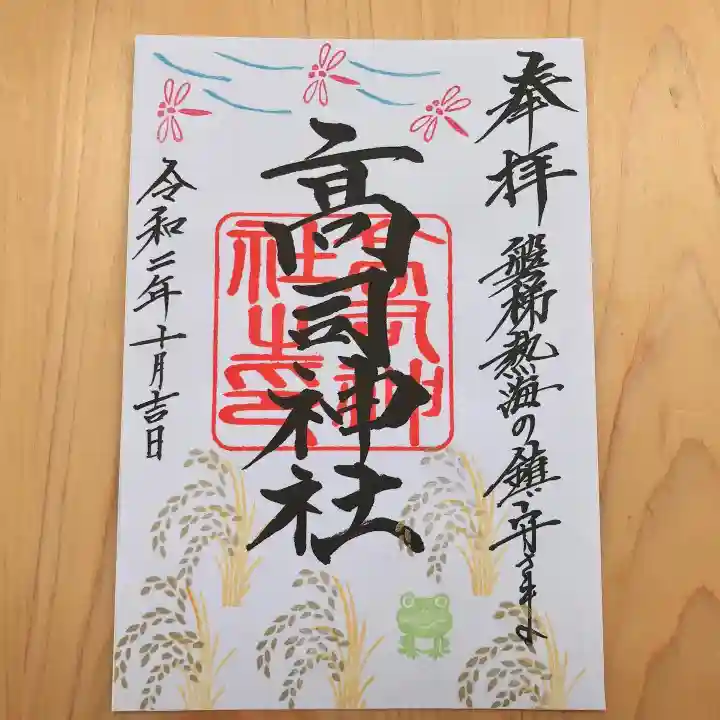 奉拝
磐梯熱海の鎮守さま
高司神社
高司神社之印
令和二年十月吉日